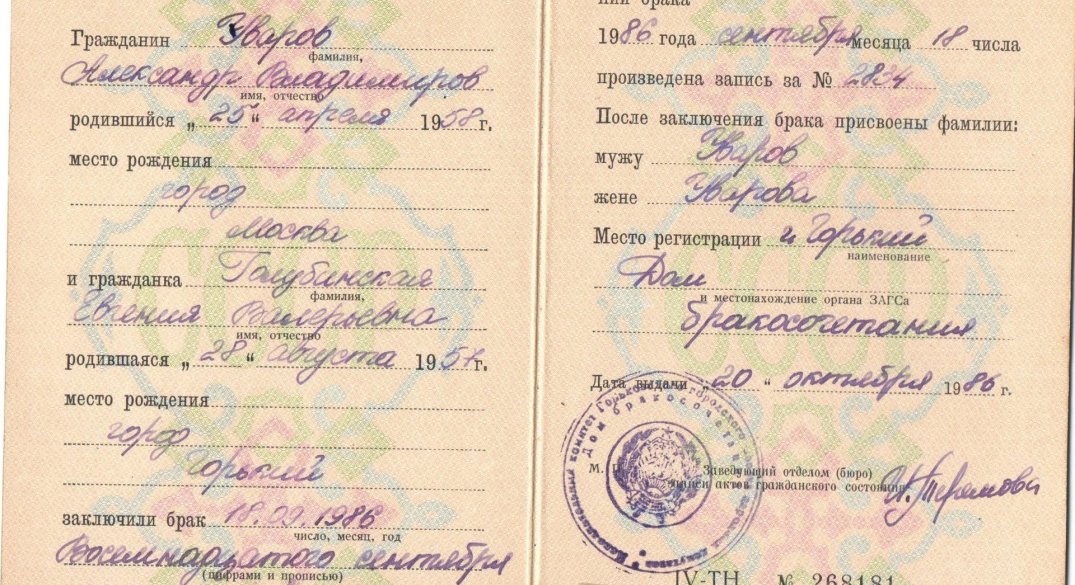 Гражданин Уваров
фамилия,
Александр Владимиров
имя, отчество
родившийся „ 25 “ апреля 1958 г.
место рождения
город
Москва
и гражданка Голубинская
фамилия,
Евгения Валерьевна
имя, отчество
родившаяся „ 28 “ августа 1957 г.
место рождения
город
Горький
заключили брак 18.09.1986
число, месяц, год
Восемнадцатого сентября
(цифрами и прописью)
нии брака
1986 года сентября месяца 18 числа
произведена запись за № 2834
После заключения брака присвоены фамилии:
мужу Уваров
жене Уварова
Место регистрации г. Горький
наименование
Дом
и местонахождение органа ЗАГСа
бракосочетания
Дата выдачи „ 20 “ октября 1986 г.
М. П.
Заведующий отделом (бюро)
записи актов гражданского состояния
Дом бракосочетания
IV-ТН № 268181